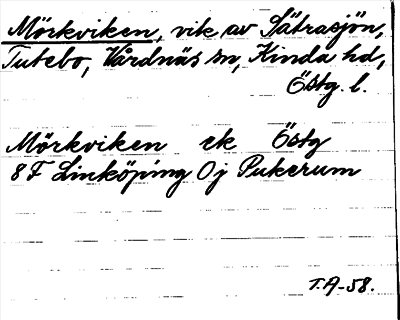 Mörkviken, vik av Sätrasjön,
Tutebo, Vårdnäs sn, Kinda hd,
Östg. l.
Mörkviken ek Östg
8 F Linköping 0j Pukerum
T.A-58.